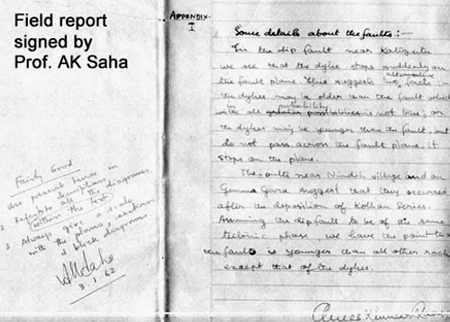 Field report
signed by
Prof. AK Saha
APPENDIX-
I
Some details about the faults:-
In the dip fault near
we see that the dykes stops suddenly on
alternative
the fault plane. This suggests two facts:
the dykes may be older than the fault which
in probability
with all is not true, or
the dykes may be younger than the fault but
do not pass across the fault plane, it
stops on the plane.
The faults near village and on
Gara suggest that they occurred
after the deposition of Kolhan Series.
Assuming the dip fault to be of the same
tectonic phase, we have the point that
the fault is younger than all other rocks
except that of the dykes.
Fairly Good
Use present tense in
descriptions
2. Refer to all the diagrams
within the text
3 Always give a scale
with the plans, sections
& block diagrams
AKSaha
3.1.62